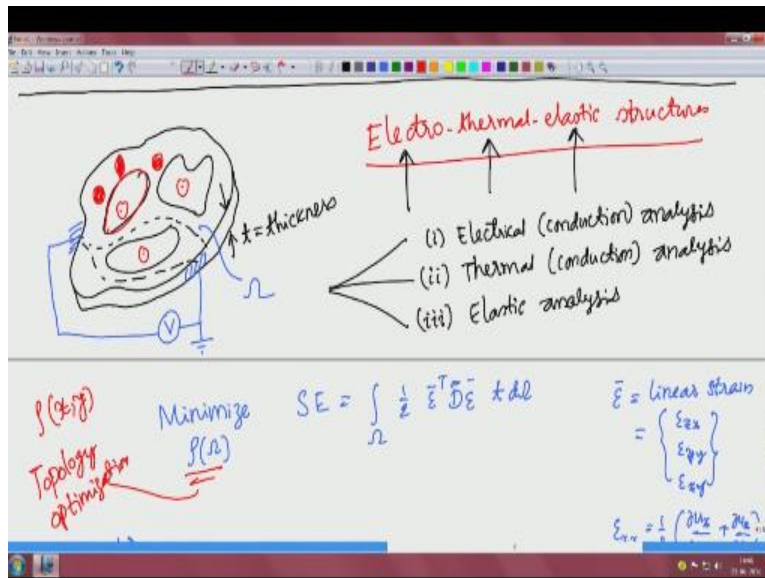 Electro-thermal-elastic structures
t = thickness
(i) Electrical (conduction) analysis
(ii) Thermal (conduction) analysis
(iii) Elastic analysis
Ω
V
ρ(x,y)
Topology
optimization
Minimize
ρ(Ω)
SE = ∫_Ω 1/2 ε̄ᵀ D̄ ε̄ t dΩ
ε̄ = linear strain
= { εxx
εyy
εxy }
εxx = 1/2 ( ∂ux + ∂ux